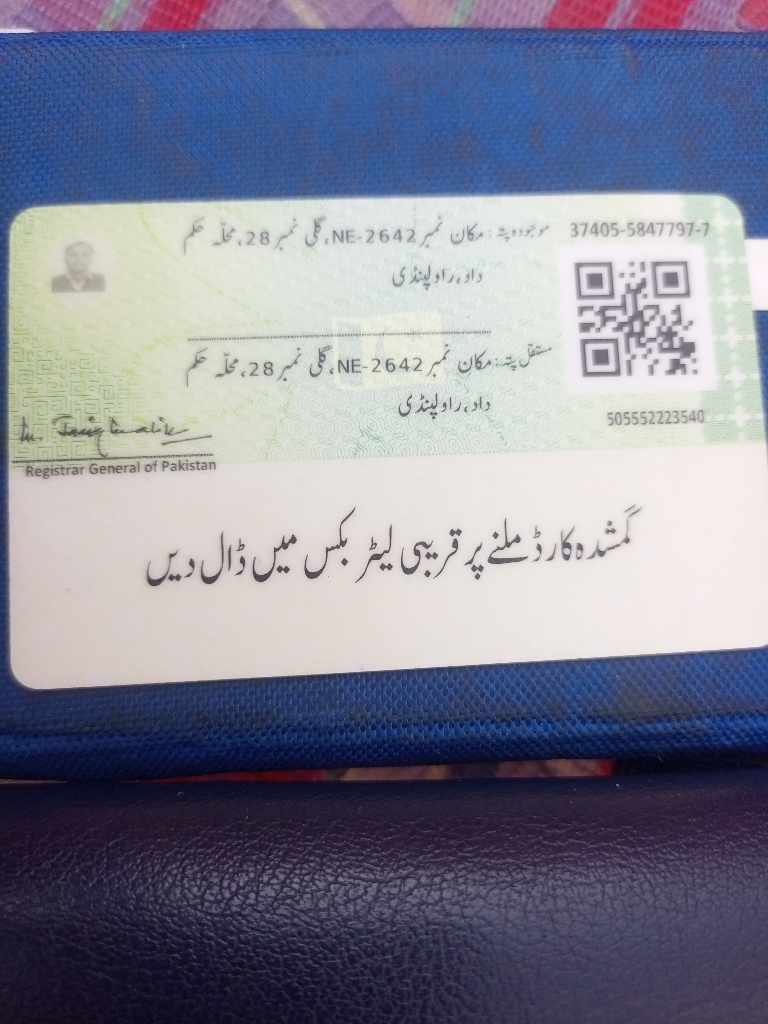 موجودہ پتہ: مکان نمبر NE-2642، گلی نمبر 28، محلّہ حکم
داد، راولپنڈی
37405-5847797-7
مستقل پتہ: مکان نمبر NE-2642، گلی نمبر 28، محلّہ حکم
داد، راولپنڈی
505552223540
Registrar General of Pakistan
گمشدہ کارڈ ملنے پر قریبی لیٹر بکس میں ڈال دیں